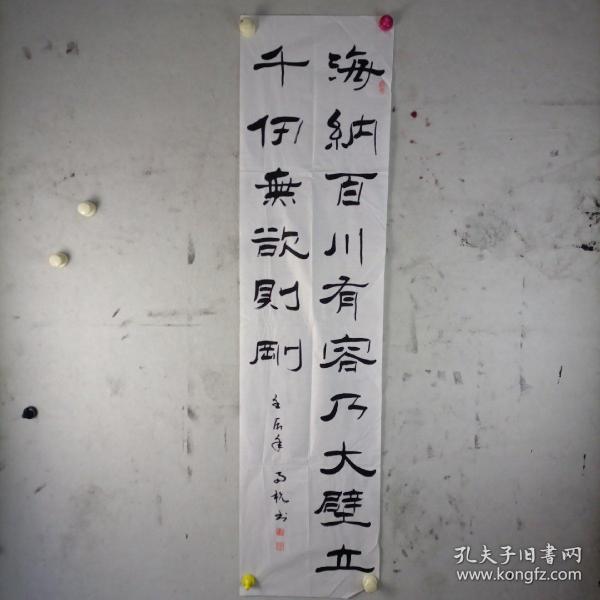 海納百川有容乃大壁立
千仞無欲則剛
壬辰年 書
孔夫子旧书网
www.kongfz.com